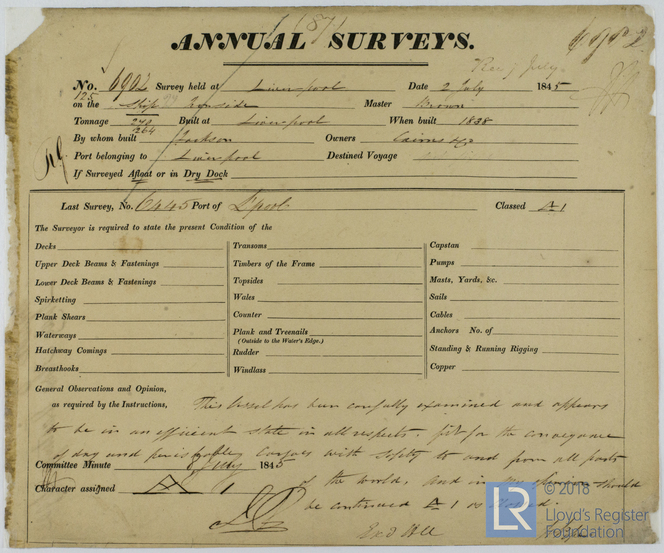 ANNUAL SURVEYS.
No. 6902 Survey held at Liverpool Date 2 July 1845
on the Ship Ironside Master Brown
Tonnage 270 264 Built at Liverpool When built 1838
By whom built Jackson Owners Cairns & Co
Port belonging to Liverpool Destined Voyage
If Surveyed Afloat or in Dry Dock
Last Survey, No. 6445 Port of Lpool Classed A 1
The Surveyor is required to state the present Condition of the
Decks
Upper Deck Beams & Fastenings
Lower Deck Beams & Fastenings
Spirketting
Plank Shears
Waterways
Hatchway Comings
Breasthooks
Transoms
Timbers of the Frame
Topsides
Wales
Counter
Plank and Treenails
(Outside to the Water's Edge.)
Rudder
Windlass
Capstan
Pumps
Masts, Yards, &c.
Sails
Cables
Anchors No. of
Standing & Running Rigging
Copper
General Observations and Opinion,
as required by the Instructions, This Vessel has been carefully examined and appears
to be in an efficient state in all respects, fit for the conveyance
of dry and perishable Cargoes with safety to and from all parts
of the world, and in my opinion should
be continued A 1 as Classed.
Committee Minute 8 July 1845
Character assigned A 1
© 2018
LR
Lloyd's Register
Foundation